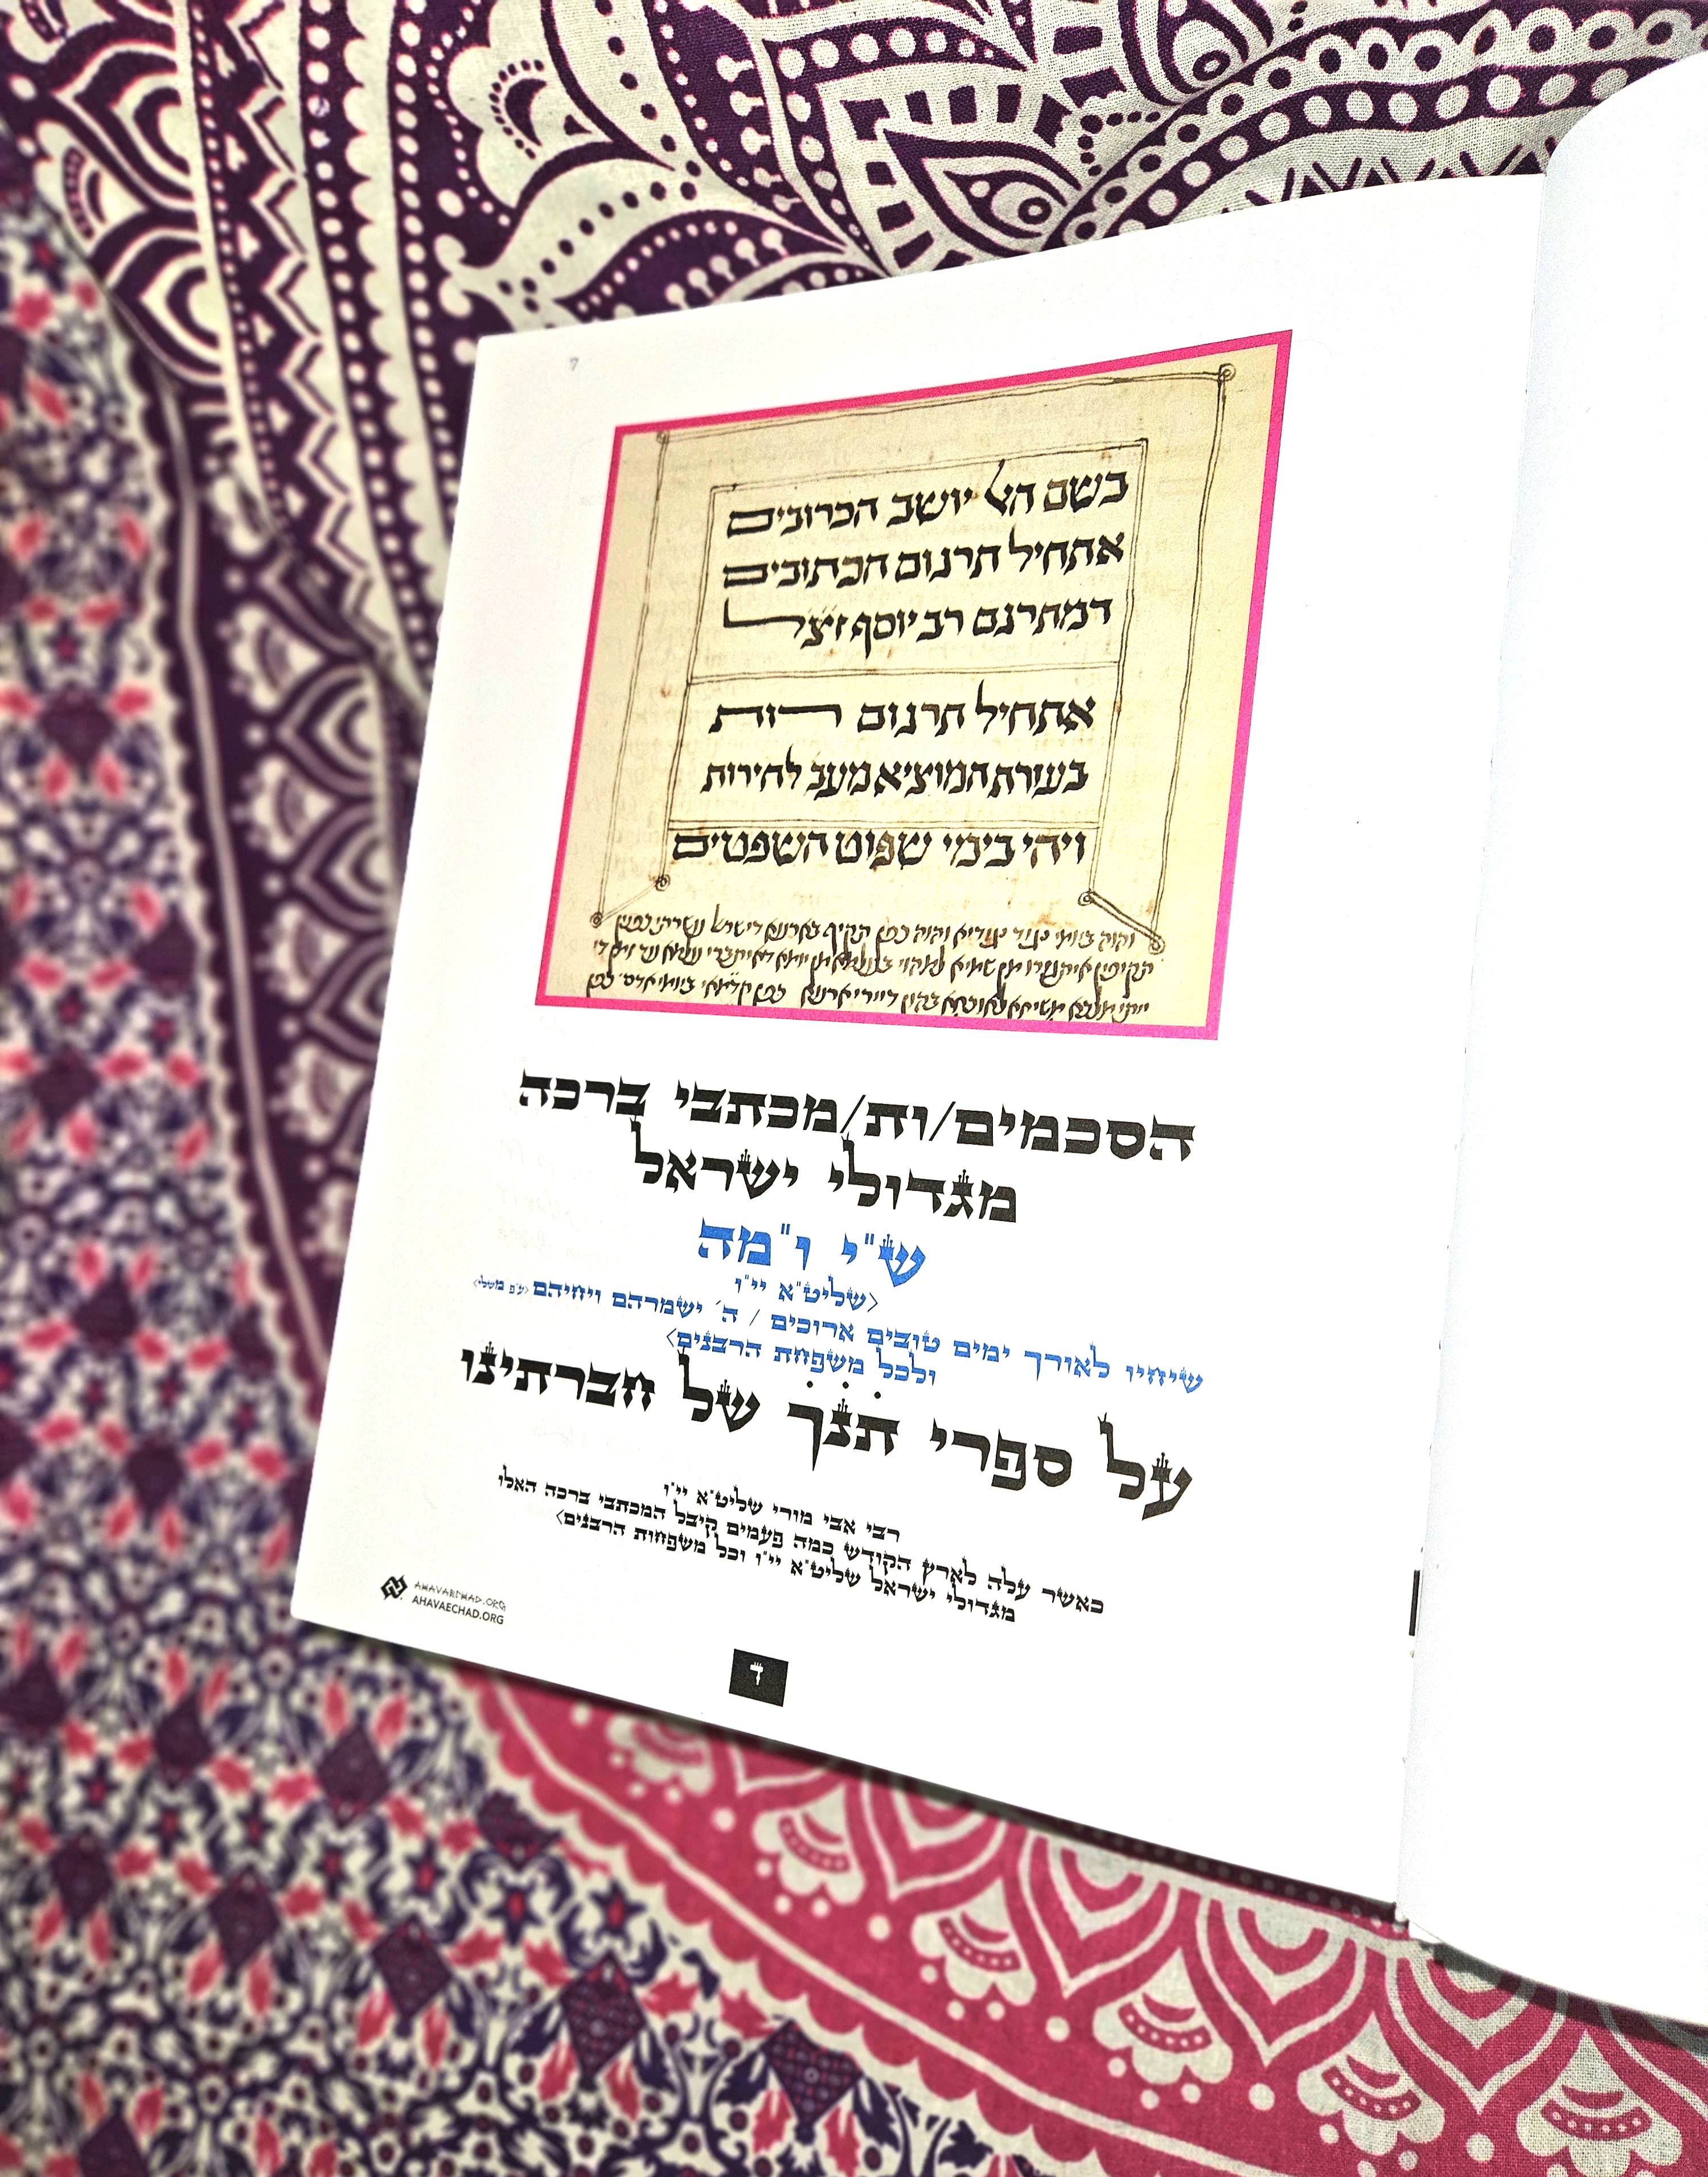 בשם האל יושב הכרובים
אתחיל תרגום הכתובים
דמתרגם רב יוסף זצ״ל
אתחיל תרגום רות
בעזרת המוציא מעב׳ לחירות
ויהי בימי שפוט השפטים
והוה ביומי נגוד נגודיא והוה כפן תקיף בארעא דישראל
הסכמים/ות/מכתבי ברכה
מגדולי ישראל
ש"י ו"מה
<שליט"א יי"ו
שיחיו לאורך ימים טובים ארוכים / ה׳ ישמרהם ויחיהם <ע״פ משלי>
ולכל משפחת הרבנים>
על ספרי תנך של חברתינו
רבי אבי מורי שליט"א יי"ו
כאשר עלה לארץ הקודש כמה פעמים קיבל המכתבי ברכה האלו
מגדולי ישראל שליט"א יי"ו וכל משפחות הרבנים>
AHAVAECHAD.ORG
AHAVAECHAD.ORG
ד